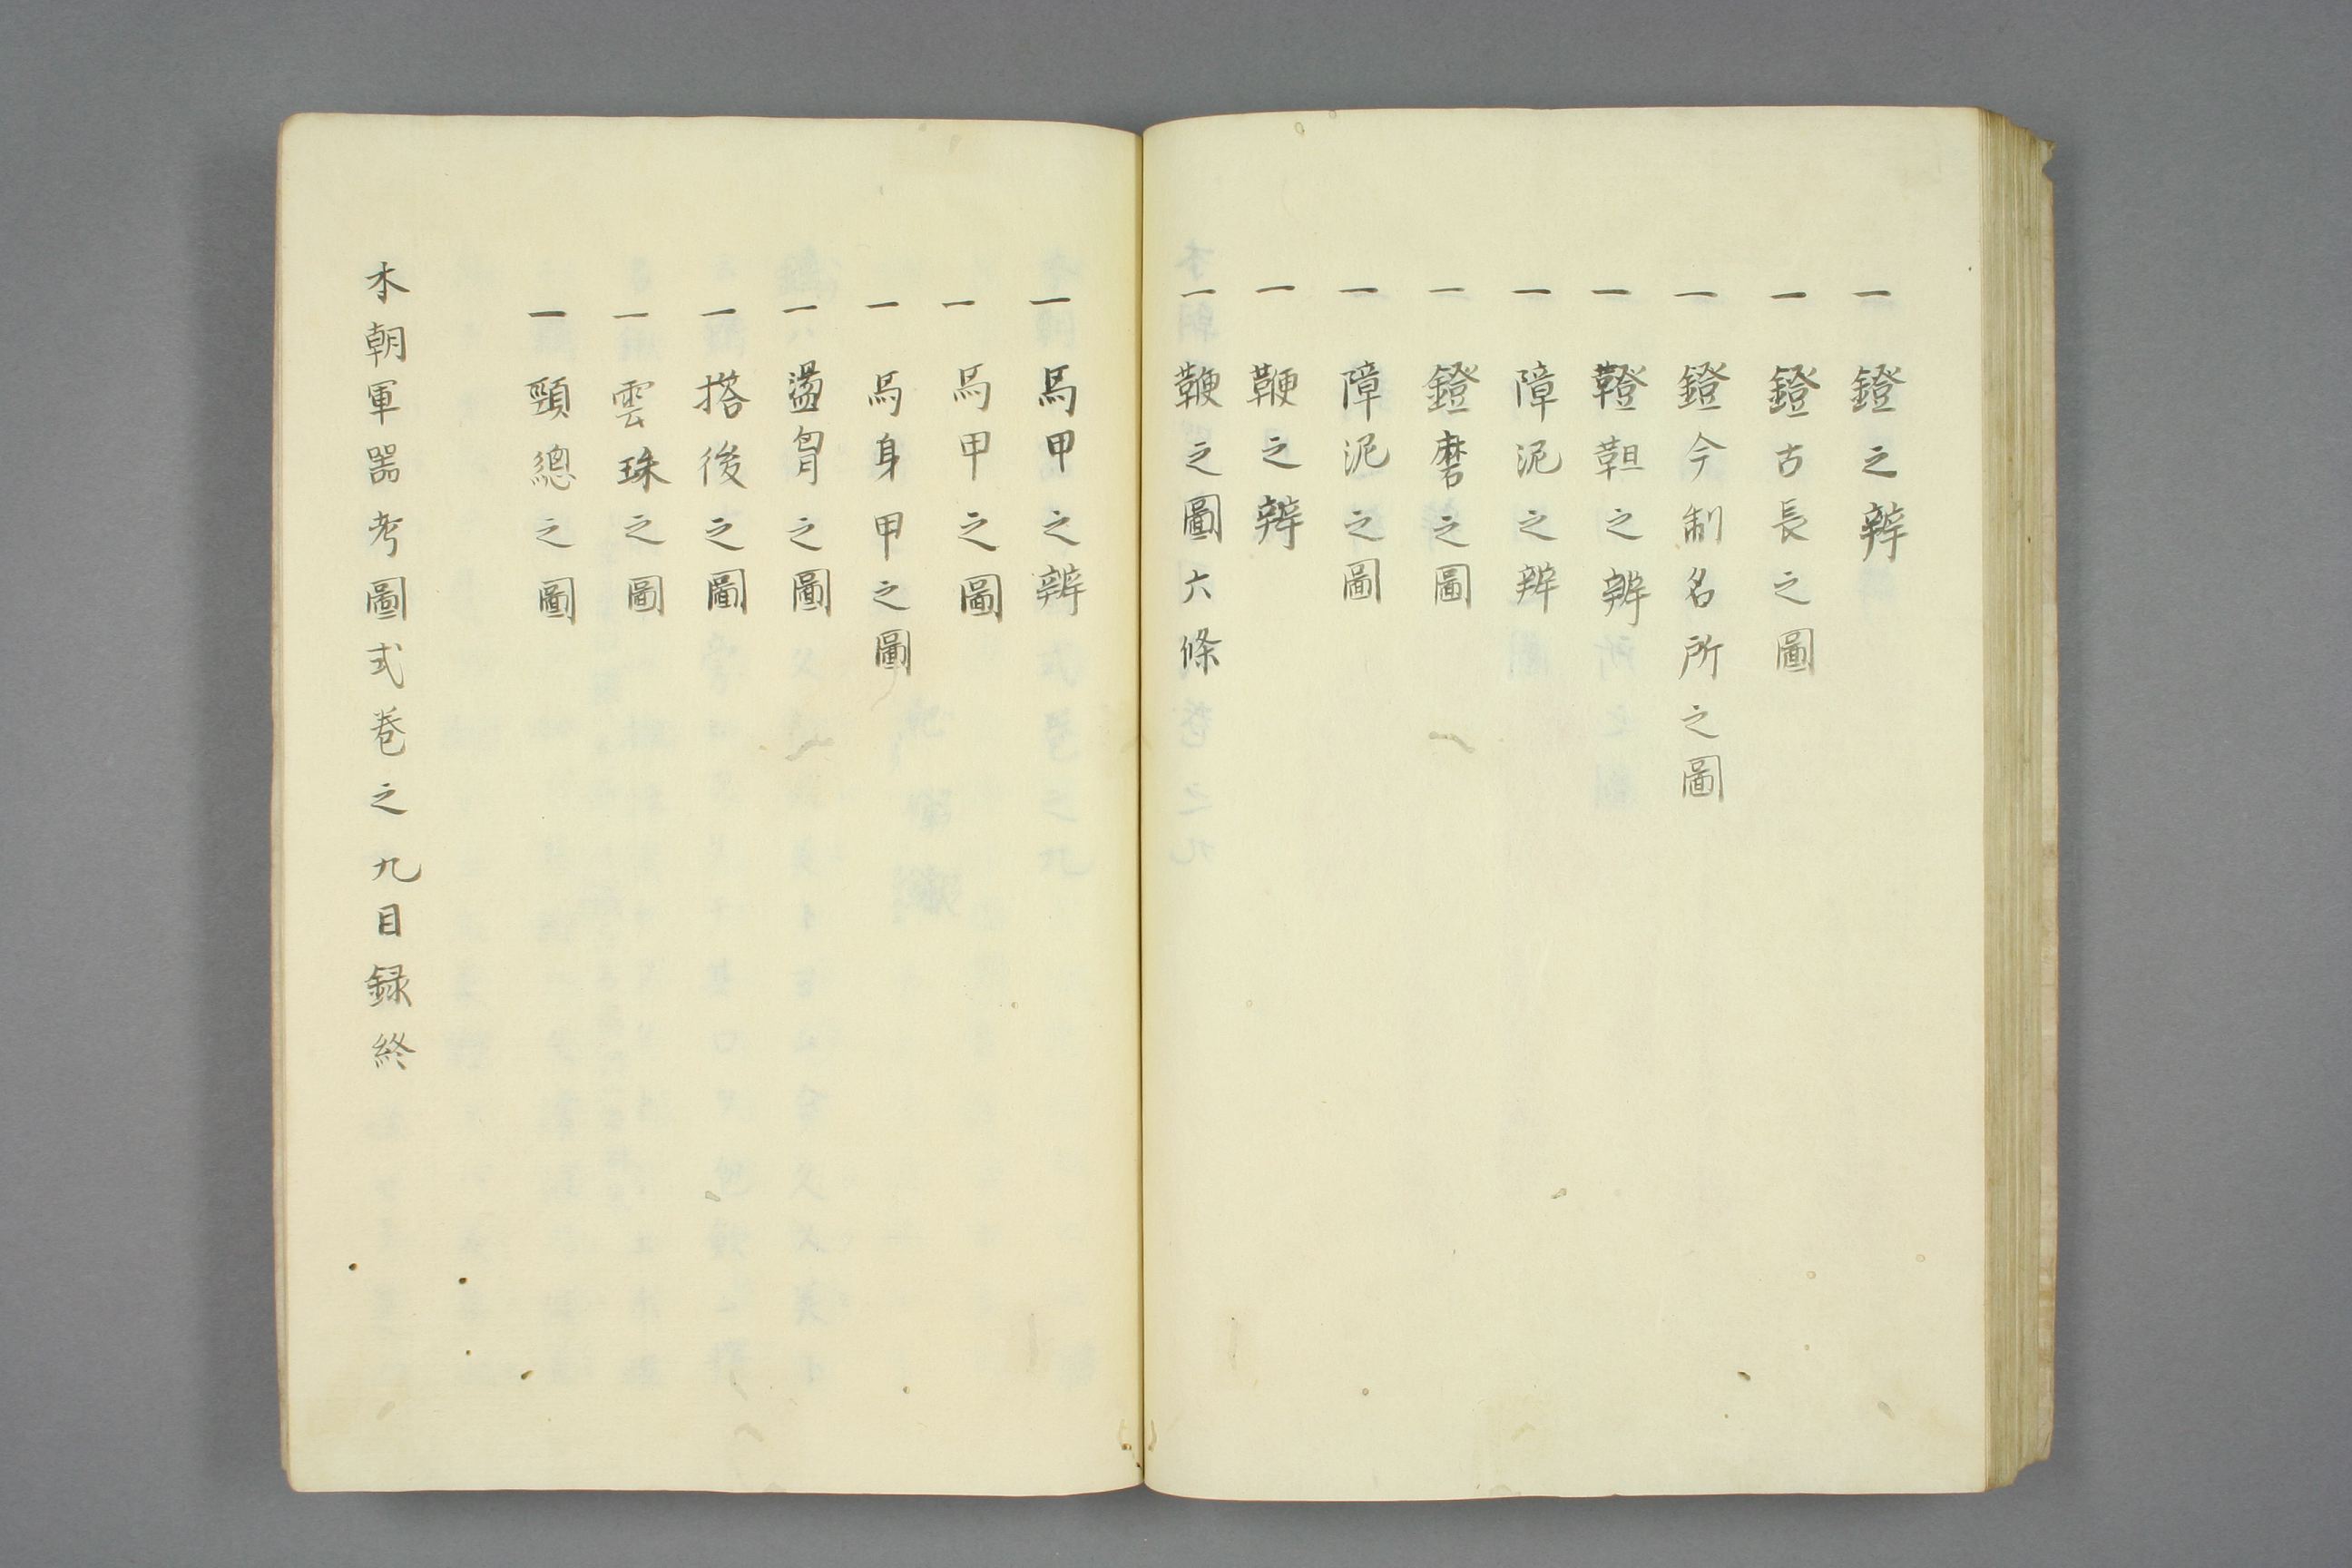 一 鐙之辨
一 鐙古長之圖
一 鐙今制名所之圖
一 鞺靻之辨
一 障泥之辨
一 鐙磨之圖
一 障泥之圖
一 鞭之辨
一 鞭之圖六條
一 馬甲之辨
一 馬甲之圖
一 馬身甲之圖
一 盪胷之圖
一 搭後之圖
一 雲珠之圖
一 頸總之圖
本朝軍噐考圖式卷之九目録終